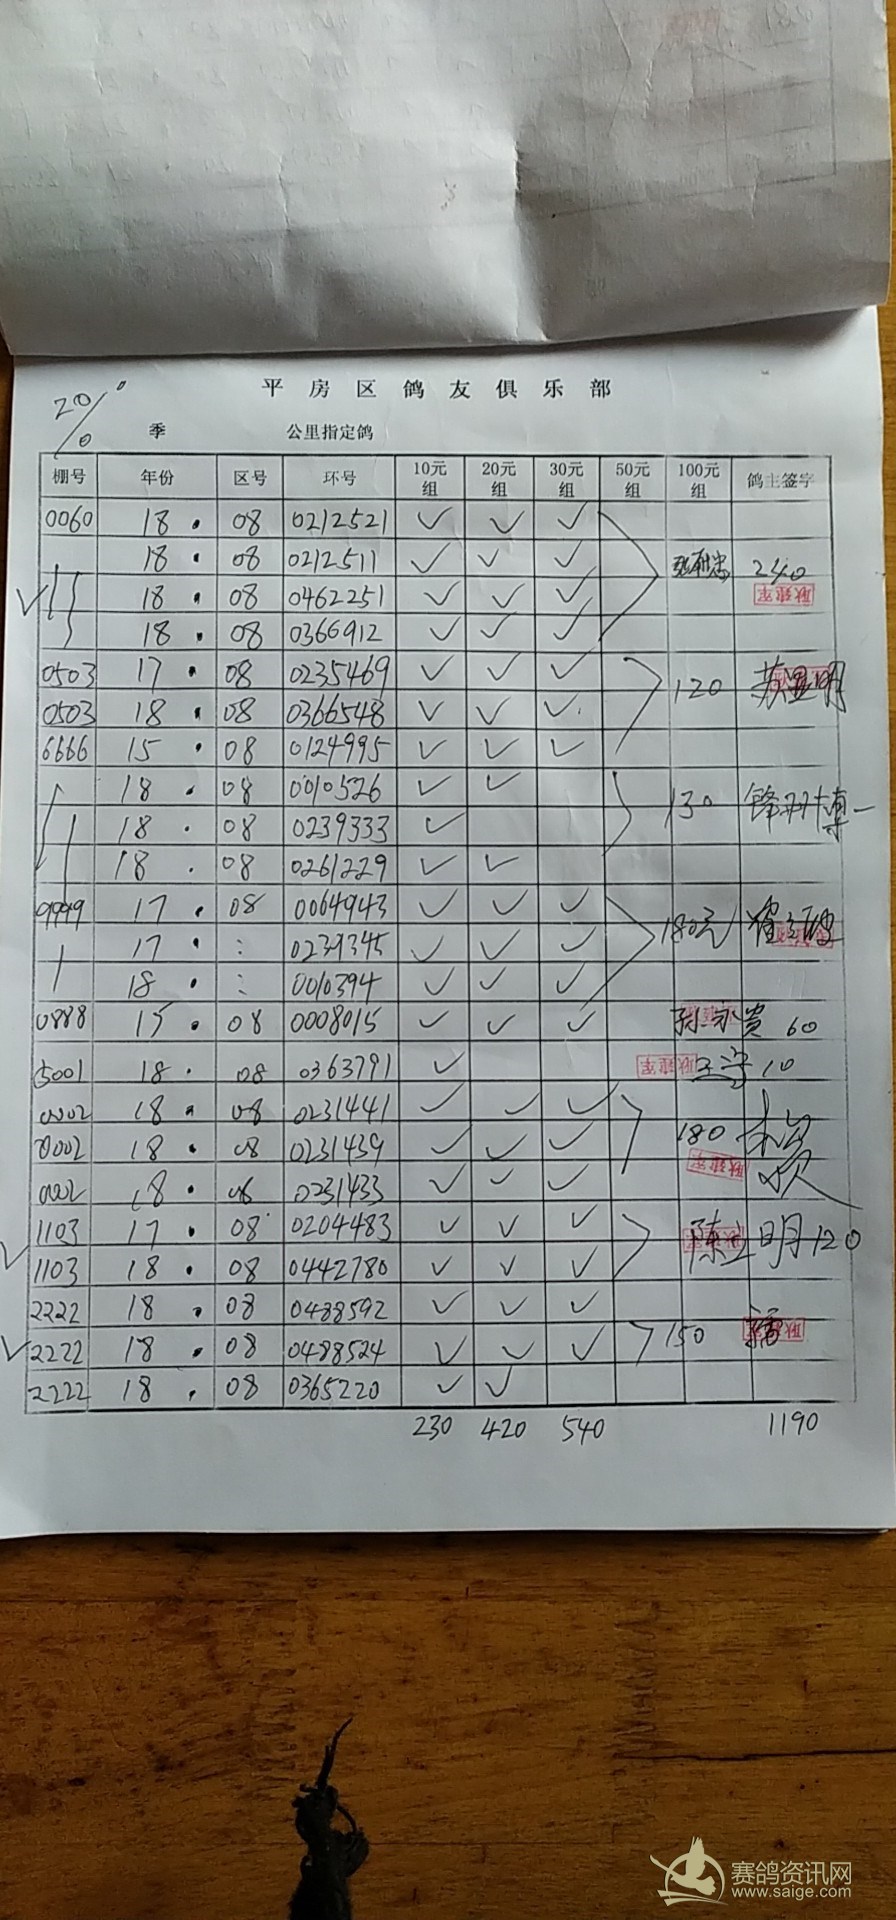 平房区鸽友俱乐部
20%
季 公里指定鸽
棚号 年份 区号 环号 10元组 20元组 30元组 50元组 100元组 鸽主签字
0060 18. 08 0212521 ✓ ✓ ✓
18. 08 0212511 ✓ ✓ ✓ 240
✓ 18. 08 0462251 ✓ ✓ ✓ 耿建军
18. 08 0366912 ✓ ✓ ✓
0503 17. 08 0235469 ✓ ✓ ✓ 120 苏显明
0503 18. 08 0366548 ✓ ✓ ✓
6666 15. 08 0124995 ✓ ✓ ✓
18. 08 0010526 ✓ ✓ 130
18. 08 0239333 ✓
18. 08 0261229 ✓ ✓
9999 17. 08 0064943 ✓ ✓ ✓ 180元
17. : 0239345 ✓ ✓ ✓
18. : 0010394 ✓ ✓ ✓
0888 15. 08 0008015 ✓ ✓ ✓ 孙永贵 60
5001 18. 08 0363791 ✓ 耿建军 王宇 10
0002 18. 08 0231441 ✓ ✓ ✓
0002 18. 08 0231439 ✓ ✓ ✓ 180 耿建军
0002 18. 08 0231433 ✓ ✓ ✓
1103 17. 08 0204483 ✓ ✓ ✓ 陈立明 120
✓ 1103 18. 08 0442780 ✓ ✓ ✓
2222 18. 08 0488592 ✓ ✓ ✓
✓ 2222 18. 08 0488524 ✓ ✓ ✓ 150
2222 18. 08 0365220 ✓ ✓
230 420 540 1190
赛鸽资讯网
www.saige.com